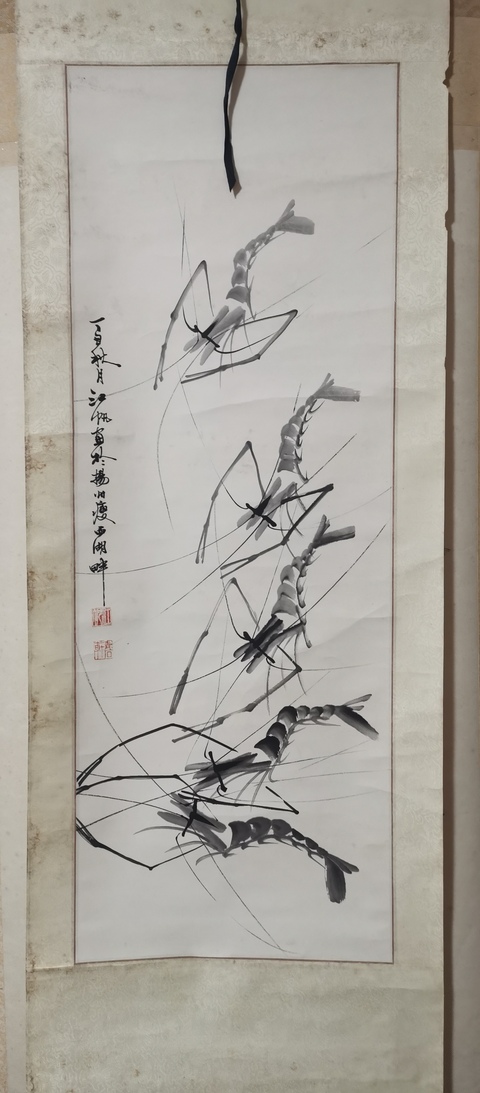 丁酉秋月江帆画於揚州瘦西湖畔